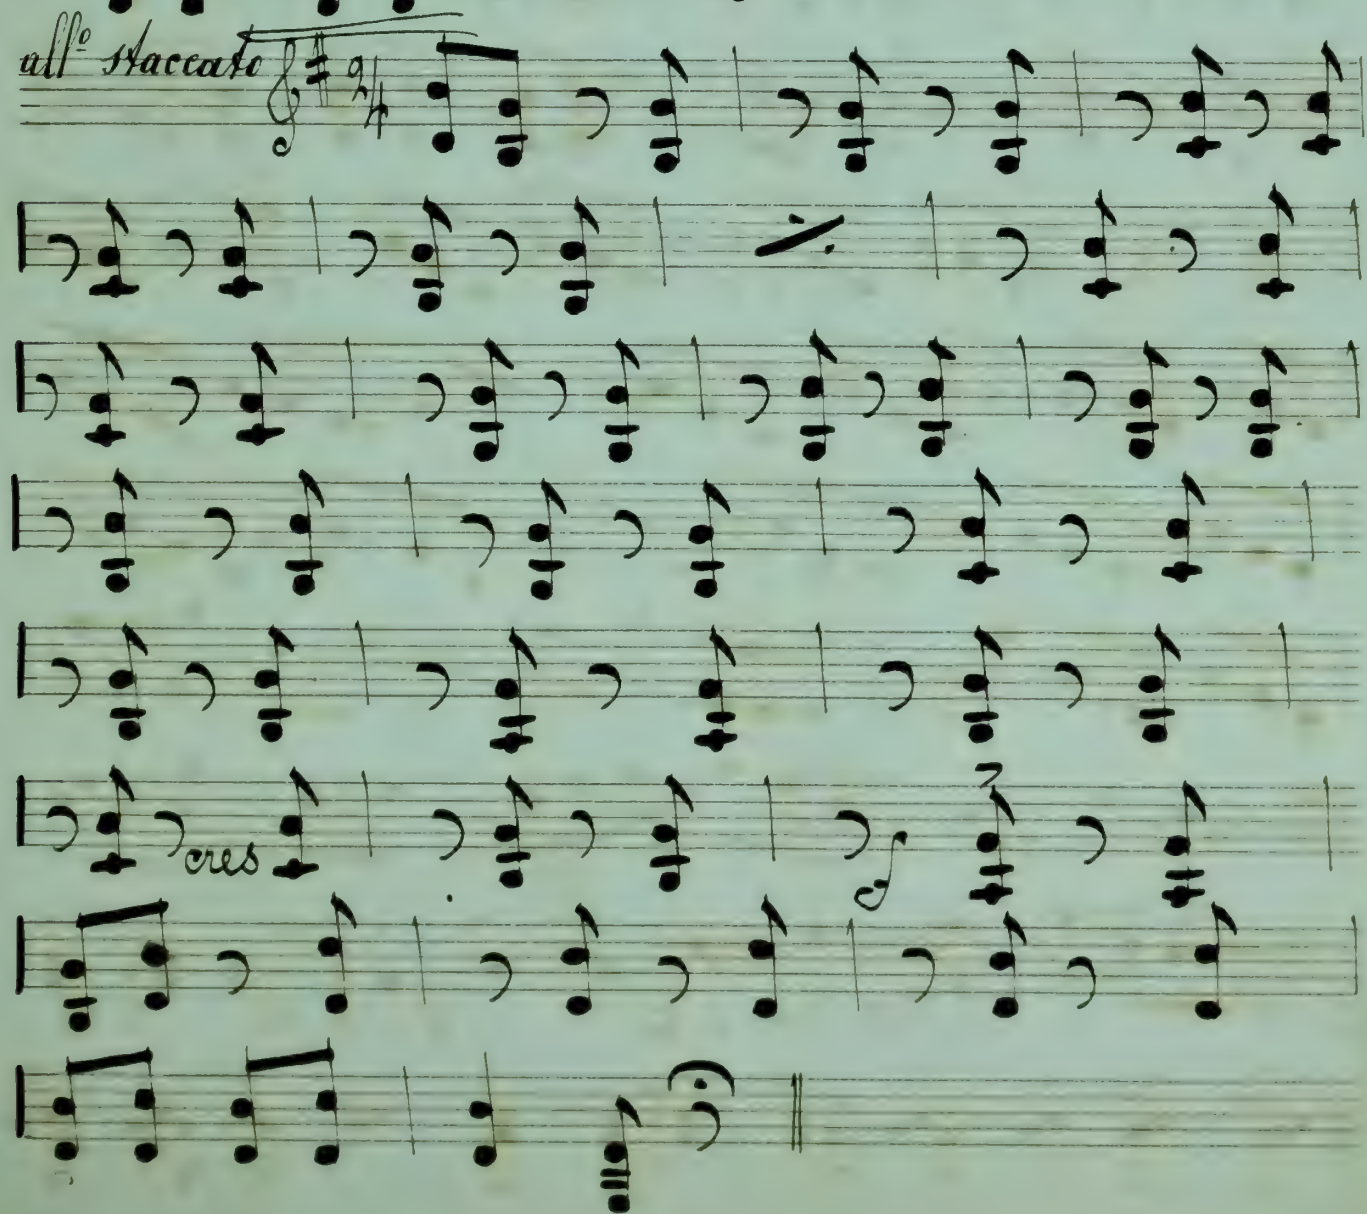 all.º staccato
2/4
cres
f